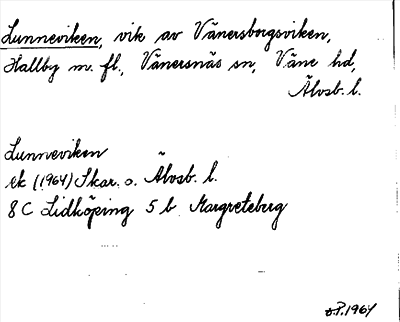 Lunneviken, vik av Vänersborgsviken,
Hallby m. fl., Vänersnäs sn, Väne hd,
Älvsb. l.
Lunneviken
ek (1964) Skar. o. Älvsb. l.
8 C Lidköping 5 b Margreteberg
D.P. 1964